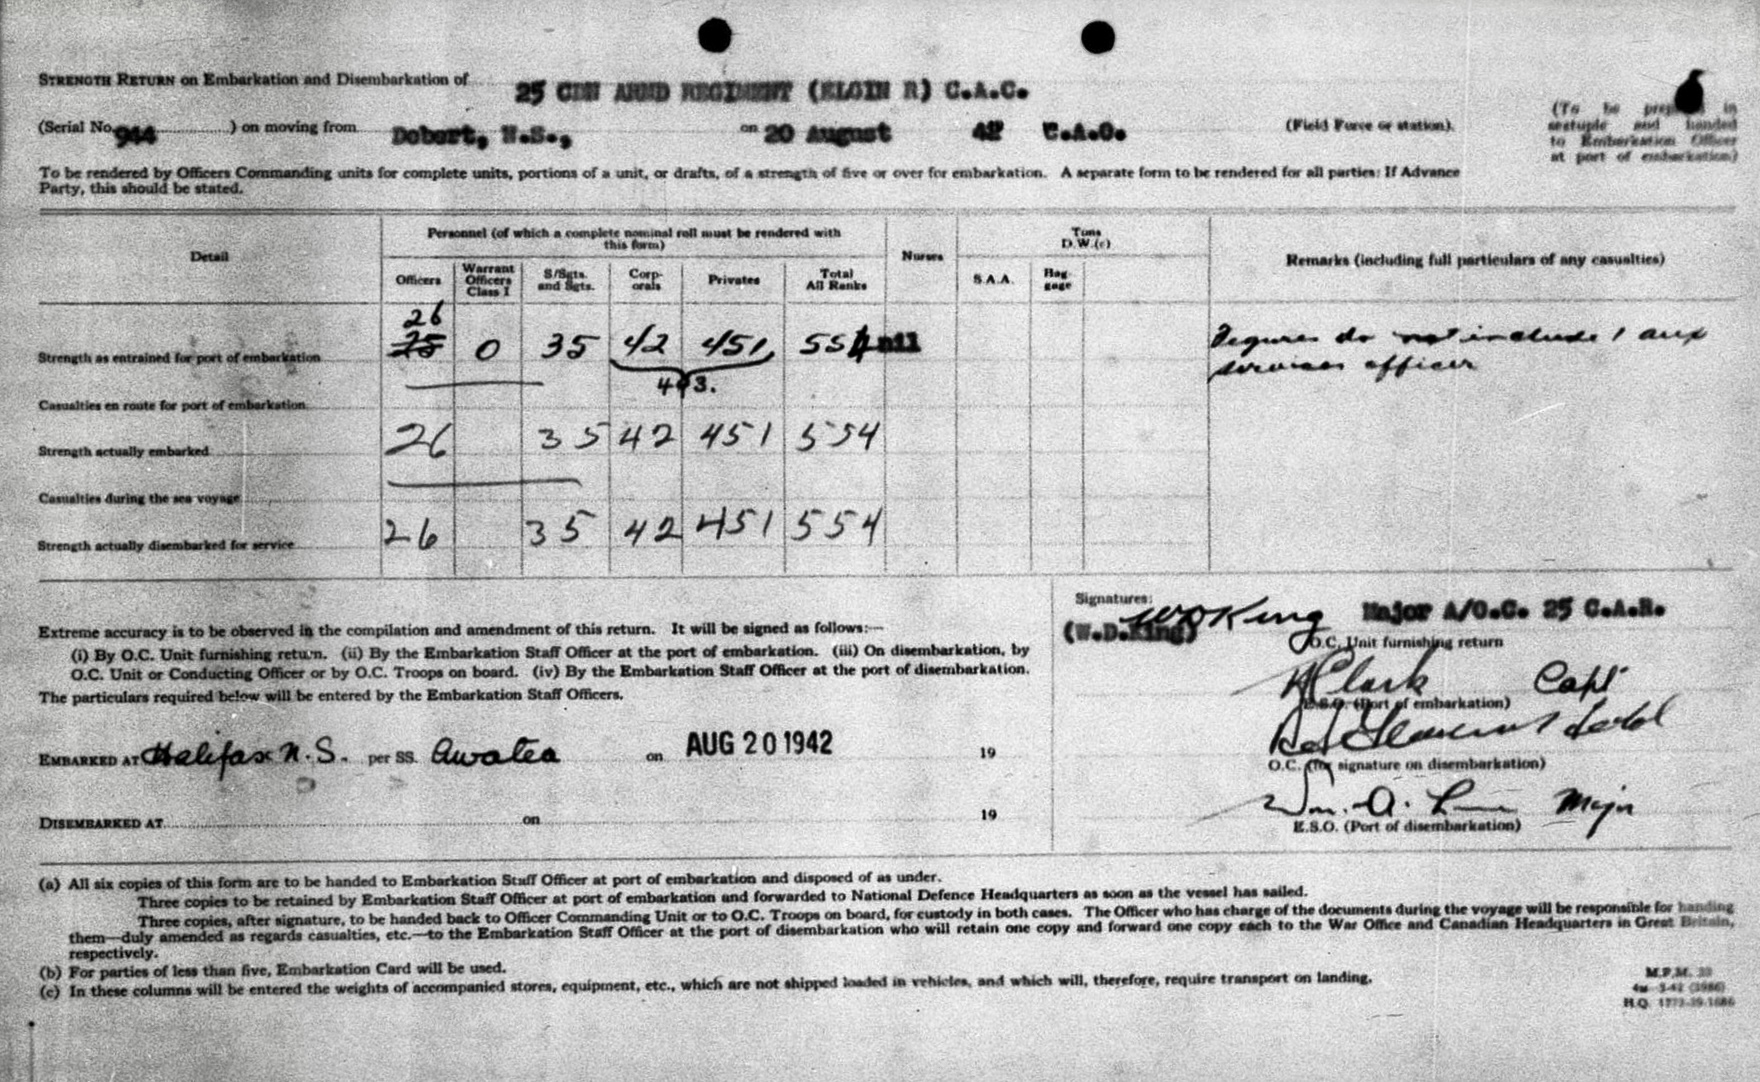 STRENGTH RETURN on Embarkation and Disembarkation of 25 CDN ARMD REGIMENT (ELGIN R) C.A.C.
(Serial No. 944 ) on moving from Debert, N.S., on 20 August 42 C.A.O. (Field Force or station).
(To be prepared in
sextuple and handed
to Embarkation Officer
at port of embarkation)
To be rendered by Officers Commanding units for complete units, portions of a unit, or drafts, of a strength of five or over for embarkation. A separate form to be rendered for all parties: If Advance
Party, this should be stated.
Detail
Personnel (of which a complete nominal roll must be rendered with
this form)
Nurses
Tons
D.W.(c)
Remarks (including full particulars of any casualties)
Officers
Warrant
Officers
Class I
S/Sgts.
and Sgts.
Corp-
orals
Privates
Total
All Ranks
S.A.A.
Bag-
gage
26
Strength as entrained for port of embarkation 25 0 35 42 451 554 nil
493.
Figures do not include 1 aux
services officer
Casualties en route for port of embarkation
Strength actually embarked 26 35 42 451 554
Casualties during the sea voyage
Strength actually disembarked for service 26 35 42 451 554
Extreme accuracy is to be observed in the compilation and amendment of this return. It will be signed as follows:—
(i) By O.C. Unit furnishing return. (ii) By the Embarkation Staff Officer at the port of embarkation. (iii) On disembarkation, by
O.C. Unit or Conducting Officer or by O.C. Troops on board. (iv) By the Embarkation Staff Officer at the port of disembarkation.
The particulars required below will be entered by the Embarkation Staff Officers.
EMBARKED AT Halifax N.S. per SS. Awatea on AUG 20 1942 19
DISEMBARKED AT on 19
Signatures:
WDKing Major A/O.C. 25 C.A.R.
(W.D.King)
O.C. Unit furnishing return
Clark Capt
E.S.O. (Port of embarkation)
O.C. (for signature on disembarkation)
Wm. A. Major
E.S.O. (Port of disembarkation)
(a) All six copies of this form are to be handed to Embarkation Staff Officer at port of embarkation and disposed of as under.
Three copies to be retained by Embarkation Staff Officer at port of embarkation and forwarded to National Defence Headquarters as soon as the vessel has sailed.
Three copies, after signature, to be handed back to Officer Commanding Unit or to O.C. Troops on board, for custody in both cases. The Officer who has charge of the documents during the voyage will be responsible for handing
them—duly amended as regards casualties, etc.—to the Embarkation Staff Officer at the port of disembarkation who will retain one copy and forward one copy each to the War Office and Canadian Headquarters in Great Britain,
respectively.
(b) For parties of less than five, Embarkation Card will be used.
(c) In these columns will be entered the weights of accompanied stores, equipment, etc., which are not shipped loaded in vehicles, and which will, therefore, require transport on landing.
M.F.M. 33
4M 3-42 (3986)
H.Q. 1772-39-1686